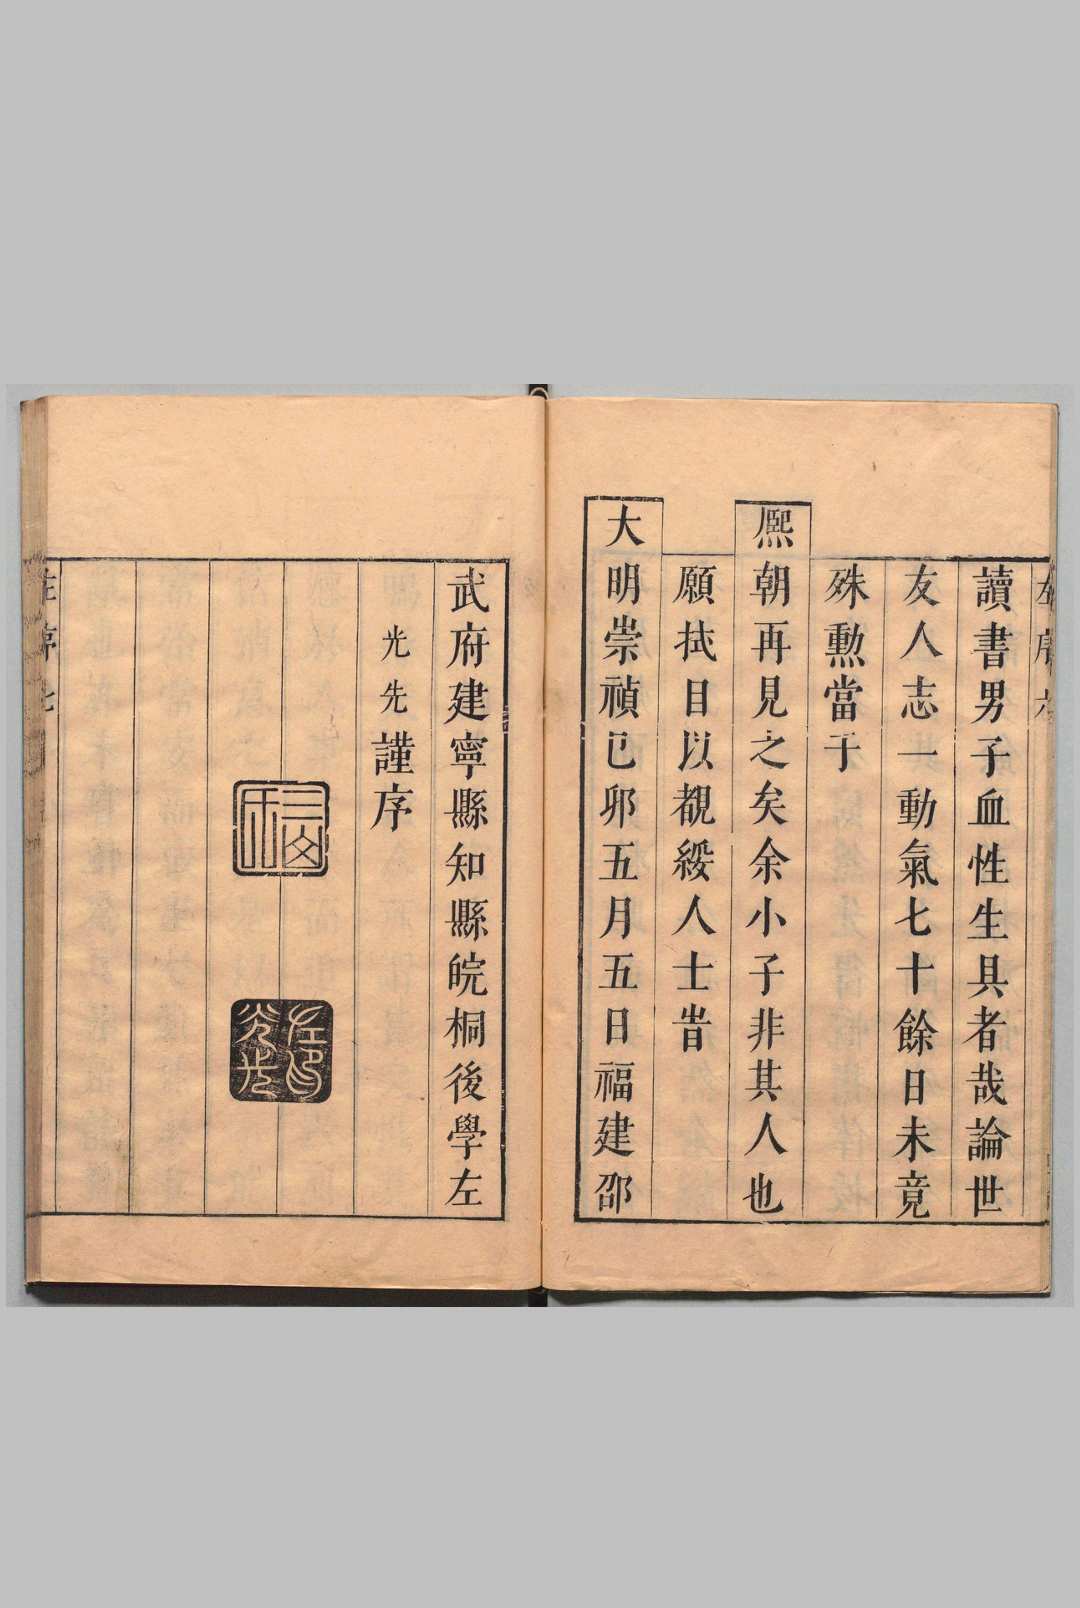 左序 六
讀書男子血性生具者哉論世
友人志一動氣七十餘日未竟
殊勲當于
熈朝再見之矣余小子非其人也
願拭目以覩綏人士旹
大明崇禎已夘五月五日福建邵
武府建寧縣知縣皖桐後學左
光先謹序
左印光先
左序 七